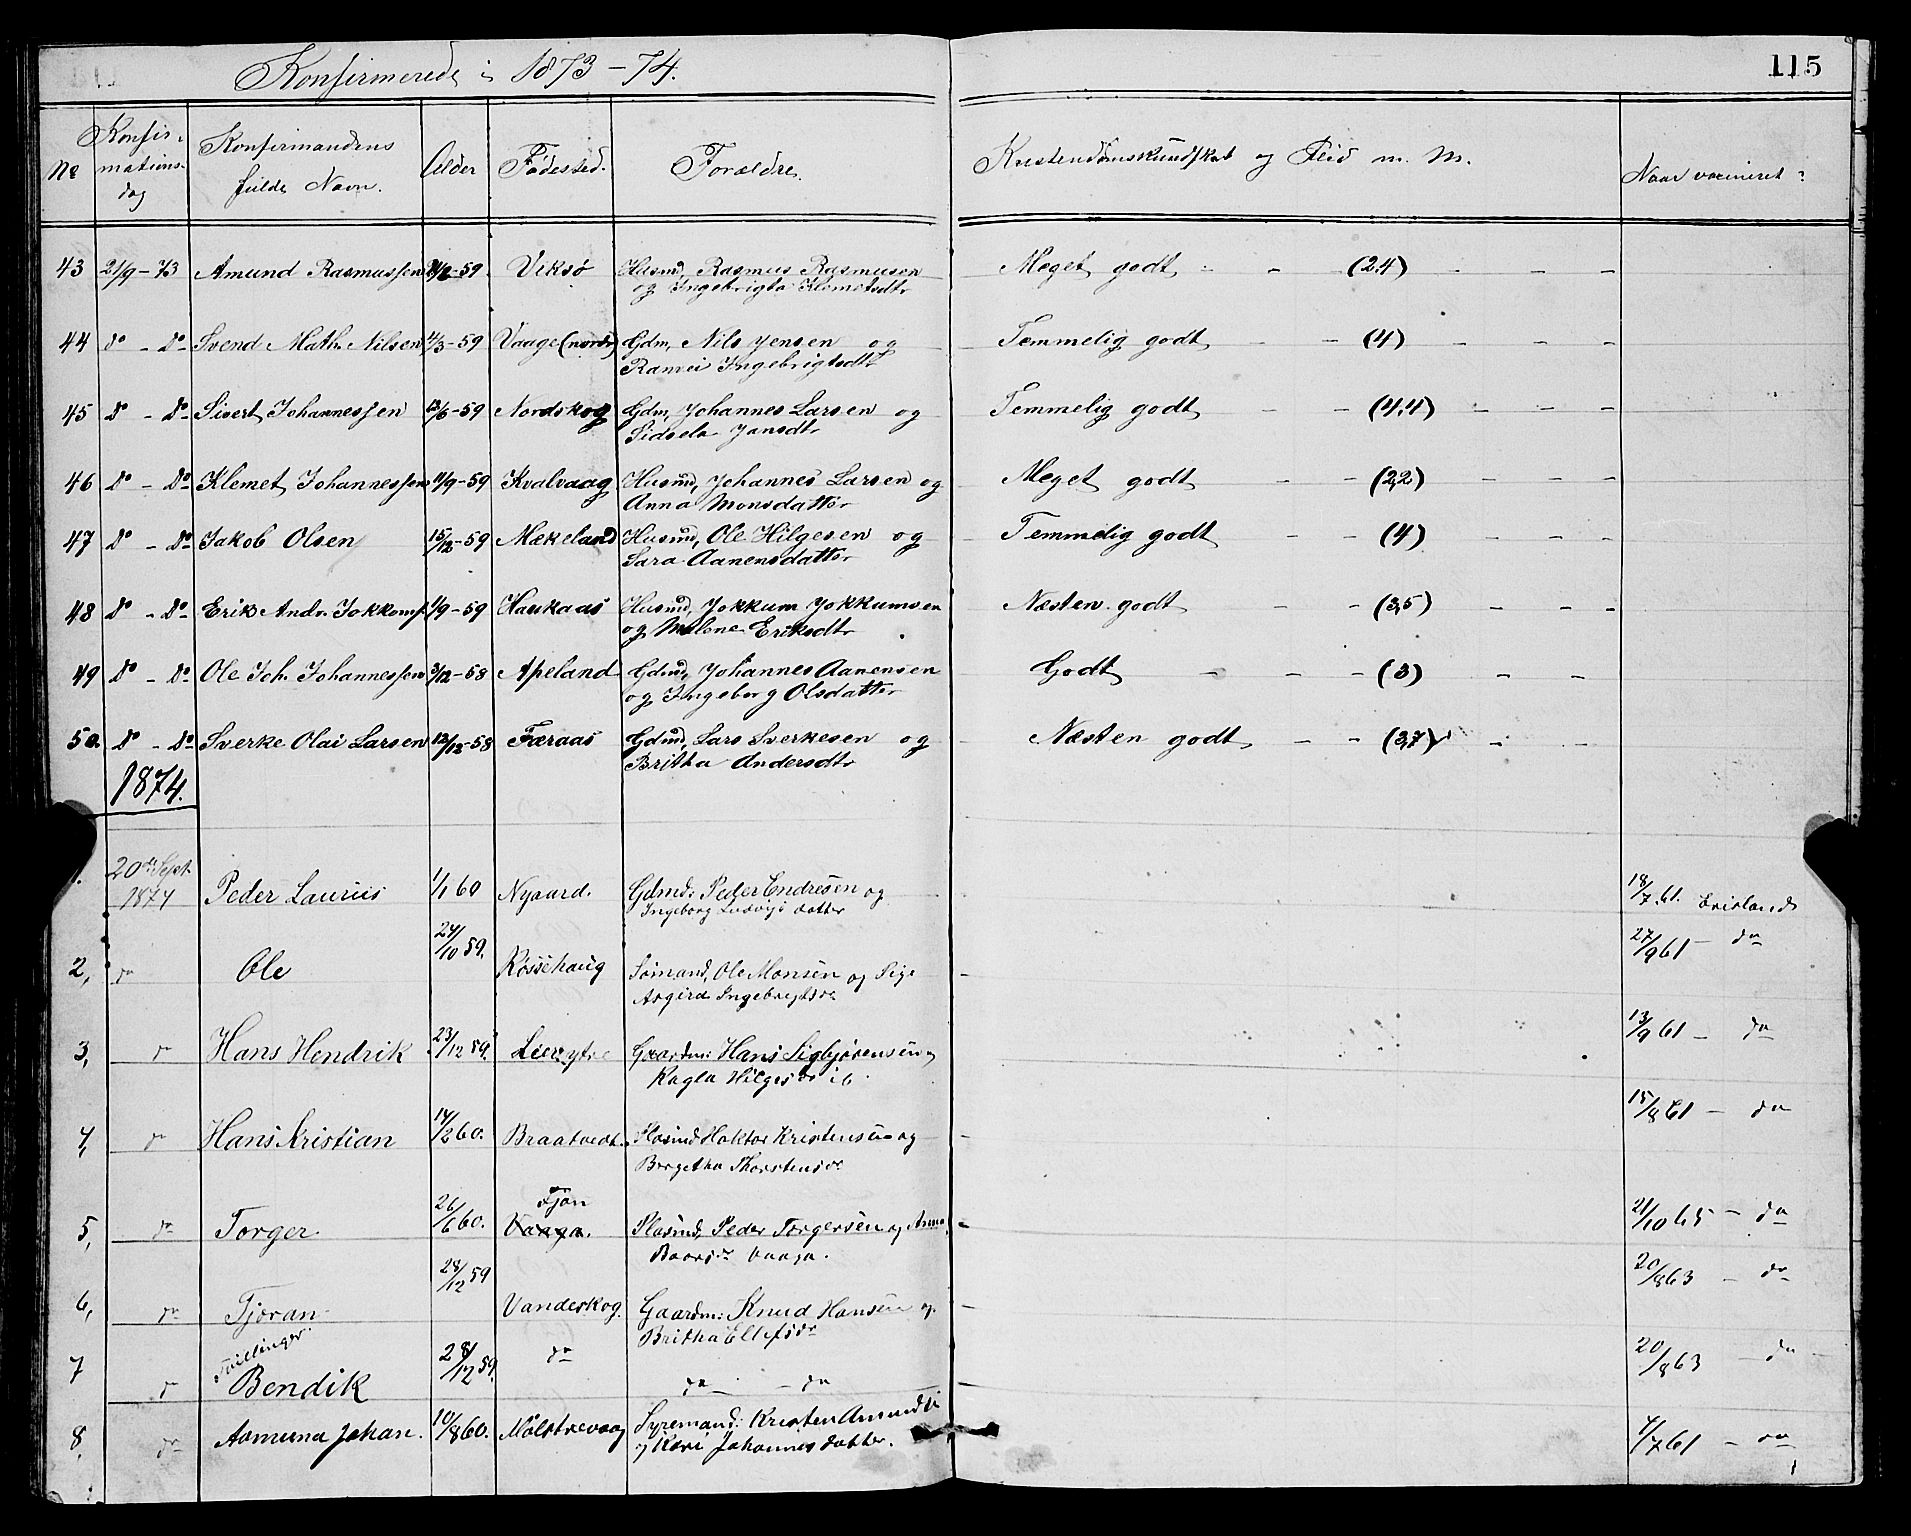 Konfirmerede i 1873-74.
115
No
Konfir-
mations-
dag
Konfirmandens
fulde Navn.
Alder
Fødested.
Forældre.
Kristendomskundskab og Flid m. M.
Naar vaccineret?
43 21/9-73 Amund Rasmussen /2-59 Viksø Husmd, Rasmus Rasmusen Meget godt - - (2,4) - - -
og Ingebrigta Klemetsdtr
44 do - do Svend Math. Nilsen 4/3-59 Vaage (nordr) Gdm, Nils Jensen og Temmelig godt - - (4) - - -
Ranvei Ingebrigtsdtr
45 do - do Sivert Johannessen 13/6-59 Nordskog Gdm, Johannes Larsen og Temmelig godt - - (4,4) - - -
Sidsela Jansdtr
46 do - do Klemet Johannessen 11/9-59 Kvalvaag Husmd, Johannes Larsen og Meget godt - - (2,2) - - -
Anna Monsdatter
47 do - do Jakob Olsen 15/12-59 Mækeland Husmd, Ole Hilgesen og Temmelig godt - - (4) - - -
Sara Aanensdatter
48 do - do Erik Andr. Jokkoms. 1/9-59 Haukaas Husmd, Jokkum Jokkumsen Næsten godt - - (3,5) - - -
og Malene Eriksdtr
49 do - do Ole Joh. Johannessen 3/12-58 Apeland Gdmd, Johannes Aanensen Godt - - - (3) - -
og Ingeborg Olsdatter
50. do - do Sverke Olai Larsen 12/12-58 Færaas Gdmd, Lars Sverkesen og Næsten godt - - (3,7) - -
Britha Andersdtr
1874.
1. 20de Sept. 1874 Peder Laurits 1/1 60 Nygaard. Gdmd: Peder Endresen og 18/7.61. Leirland
Ingeborg Ludvigs datter
2, do Ole 24/10 59. Røssehaug Sømand, Ole Monsen og Sige 27/9 61 - do
Asgird Ingebrigtsdr
3, do Hans Hendrik 23/12 59. Lier ytre Gaardm: Hans Sigbjørensen og 13/9 61 - do
Ragla Hilgesdr ib.
4, do Hans Kristian 14/2 60. Braatvedt. Plasmd Haktor Kristensen og 15/8 61 - do
Bergetha Thorstensdr
5, do Torger. 26/6 60. Fjon Vaaga. Plasmd, Peder Torgersen og Anna 21/10 65 - do
Baarsdr Vaaga.
6, do Tjoran 28/12 59 Vandeskog. Gaardm: Knud Hansen og 20/8 63 - do
Britha Ellefsdr
Tvillinger.
7 do Bendik 28/12 59. do do - do 20/8 63 - do
8. do Asmund Johan. 10/8 60. Mølstrevaag Syremand: Kristen Amunds 4/7 61 - do
og Kari Johannesdatter.